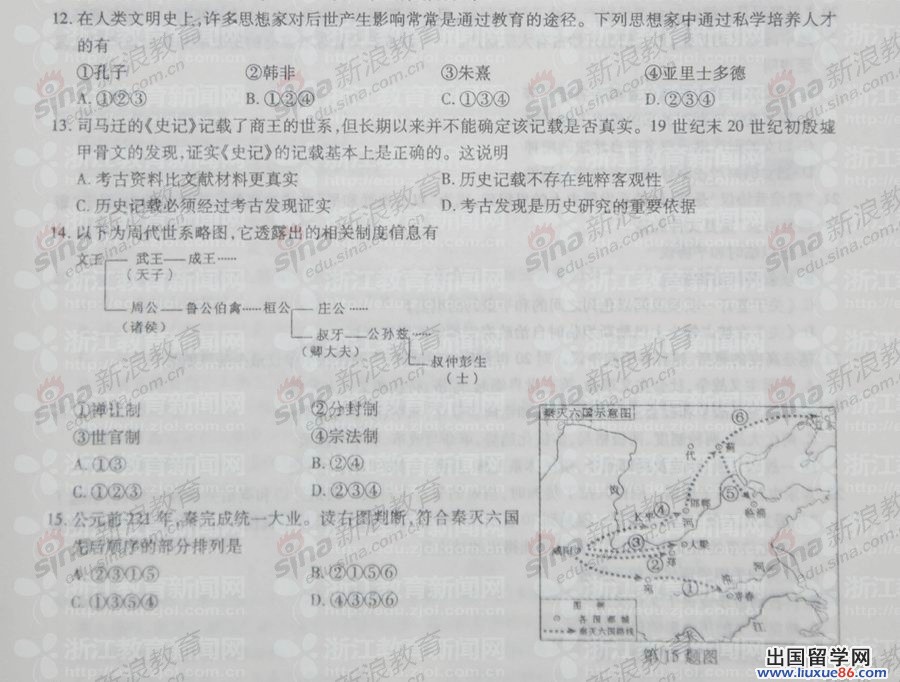 12. 在人类文明史上,许多思想家对后世产生影响常常是通过教育的途径。下列思想家中通过私学培养人才
的有
①孔子 ②韩非 ③朱熹 ④亚里士多德
A. ①②③ B. ①②④ C. ①③④ D. ②③④
13. 司马迁的《史记》记载了商王的世系,但长期以来并不能确定该记载是否真实。19世纪末20世纪初殷墟
甲骨文的发现,证实《史记》的记载基本上是正确的。这说明
A. 考古资料比文献材料更真实 B. 历史记载不存在纯粹客观性
C. 历史记载必须经过考古发现证实 D. 考古发现是历史研究的重要依据
14. 以下为周代世系略图,它透露出的相关制度信息有
文王 武王——成王……
(天子)
周公——鲁公伯禽……桓公 庄公……
(诸侯)
叔牙——公孙兹……
(卿大夫)
叔仲彭生
(士)
①禅让制 ②分封制
③世官制 ④宗法制
A. ①③ B. ②④
C. ①②③ D. ②③④
15. 公元前221年,秦完成统一大业。读右图判断,符合秦灭六国
先后顺序的部分排列是
A. ②③①⑤ B. ②①⑤⑥
C. ①③⑤④ D. ④③⑤⑥
秦灭六国示意图
⑥
代
蓟
⑤
邯郸
④
河
③
大梁
咸阳
②
郑
①
寿春
河
江
图例
各国都城
秦灭六国路线
第15题图
sina新浪教育
edu.sina.com.cn
浙江教育新闻网
http://edu.zjol.com.cn
出国留学网
www.liuxue86.com